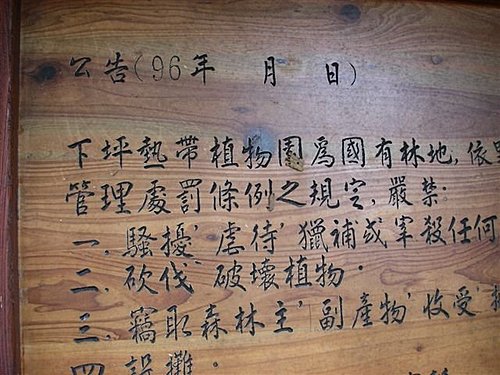 公告(96年 月 日)
下坪熱帶植物園為國有林地,依
管理處罰條例之規定,嚴禁:
一、騷擾、虐待、獵補或宰殺任何
二、砍伐、破壞植物。
三、竊取森林主、副產物、收受、
四、設攤。